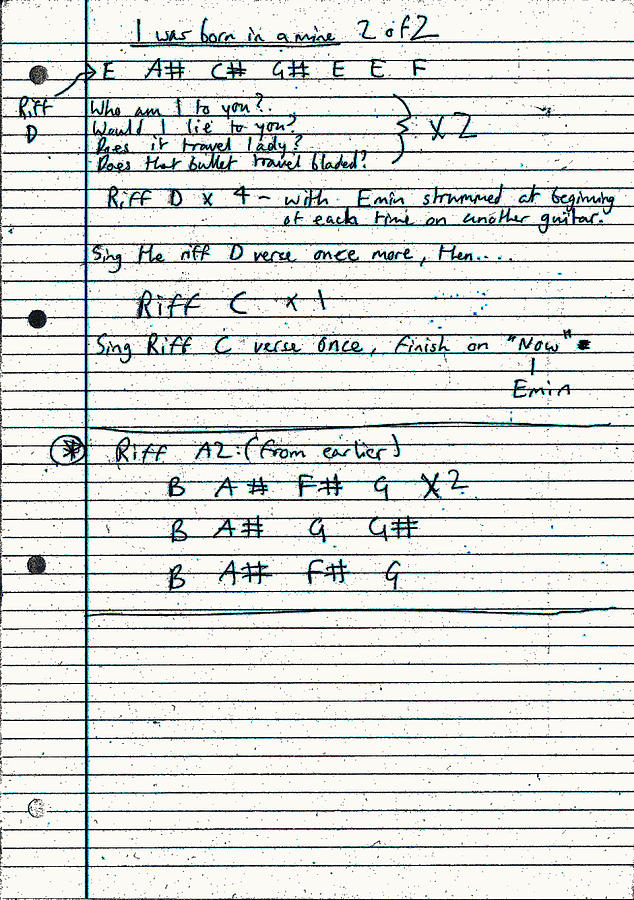 I was born in a mine 2 of 2
E A# C# G# E E F
Riff D
Who am I to you?
Would I lie to you?
Does it travel lady?
Does that bullet travel bladed?
X 2
Riff D x 4 - with Emin strummed at beginning
of each time on another guitar.
Sing the riff D verse once more, then....
Riff C x 1
Sing Riff C verse once, finish on "Now"
Emin
* Riff A2: (from earlier)
B A# F# G X2
B A# G G#
B A# F# G